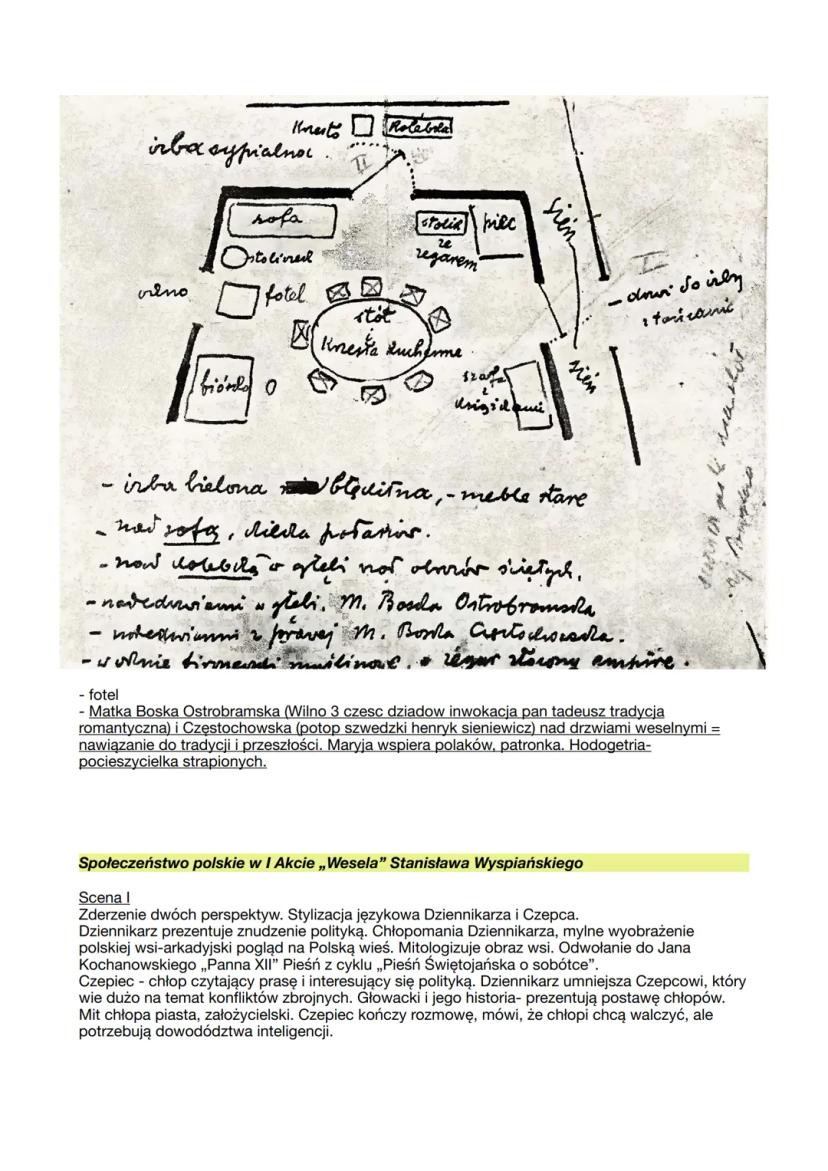 krzesło
kolebka
izba sypialna
II
sofa
stolik
ze
zegarem
piec
sień
stoliczek
okno
fotel
stół
i
krzesła kuchenne
I
- drzwi do izby
z tańcami
biórko
szafa
z
księżkami
sień
- izba bielona błękitna, - meble stare
- nad sofą,
- nad kolebką w głębi rząd obrazów świętych.
- nadedrzwiami w głębi. M. Boska Ostrobramska
- nadedrzwiami z prawej M. Boska Częstochowska.
- w oknie firaneczki muślinowe. zegar złocony empire.
- fotel
- Matka Boska Ostrobramska (Wilno 3 czesc dziadow inwokacja pan tadeusz tradycja
romantyczna) i Częstochowska (potop szwedzki henryk sieniewicz) nad drzwiami weselnymi =
nawiązanie do tradycji i przeszłości. Maryja wspiera polaków, patronka. Hodogetria-
pocieszycielka strapionych.
Społeczeństwo polskie w I Akcie „Wesela” Stanisława Wyspiańskiego
Scena I
Zderzenie dwóch perspektyw. Stylizacja językowa Dziennikarza i Czepca.
Dziennikarz prezentuje znudzenie polityką. Chłopomania Dziennikarza, mylne wyobrażenie
polskiej wsi-arkadyjski pogląd na Polską wieś. Mitologizuje obraz wsi. Odwołanie do Jana
Kochanowskiego „Panna XII” Pieśń z cyklu „Pieśń Świętojańska o sobótce”.
Czepiec - chłop czytający prasę i interesujący się polityką. Dziennikarz umniejsza Czepcowi, który
wie dużo na temat konfliktów zbrojnych. Głowacki i jego historia- prezentują postawę chłopów.
Mit chłopa piasta, założycielski. Czepiec kończy rozmowę, mówi, że chłopi chcą walczyć, ale
potrzebują dowodództwa inteligencji.